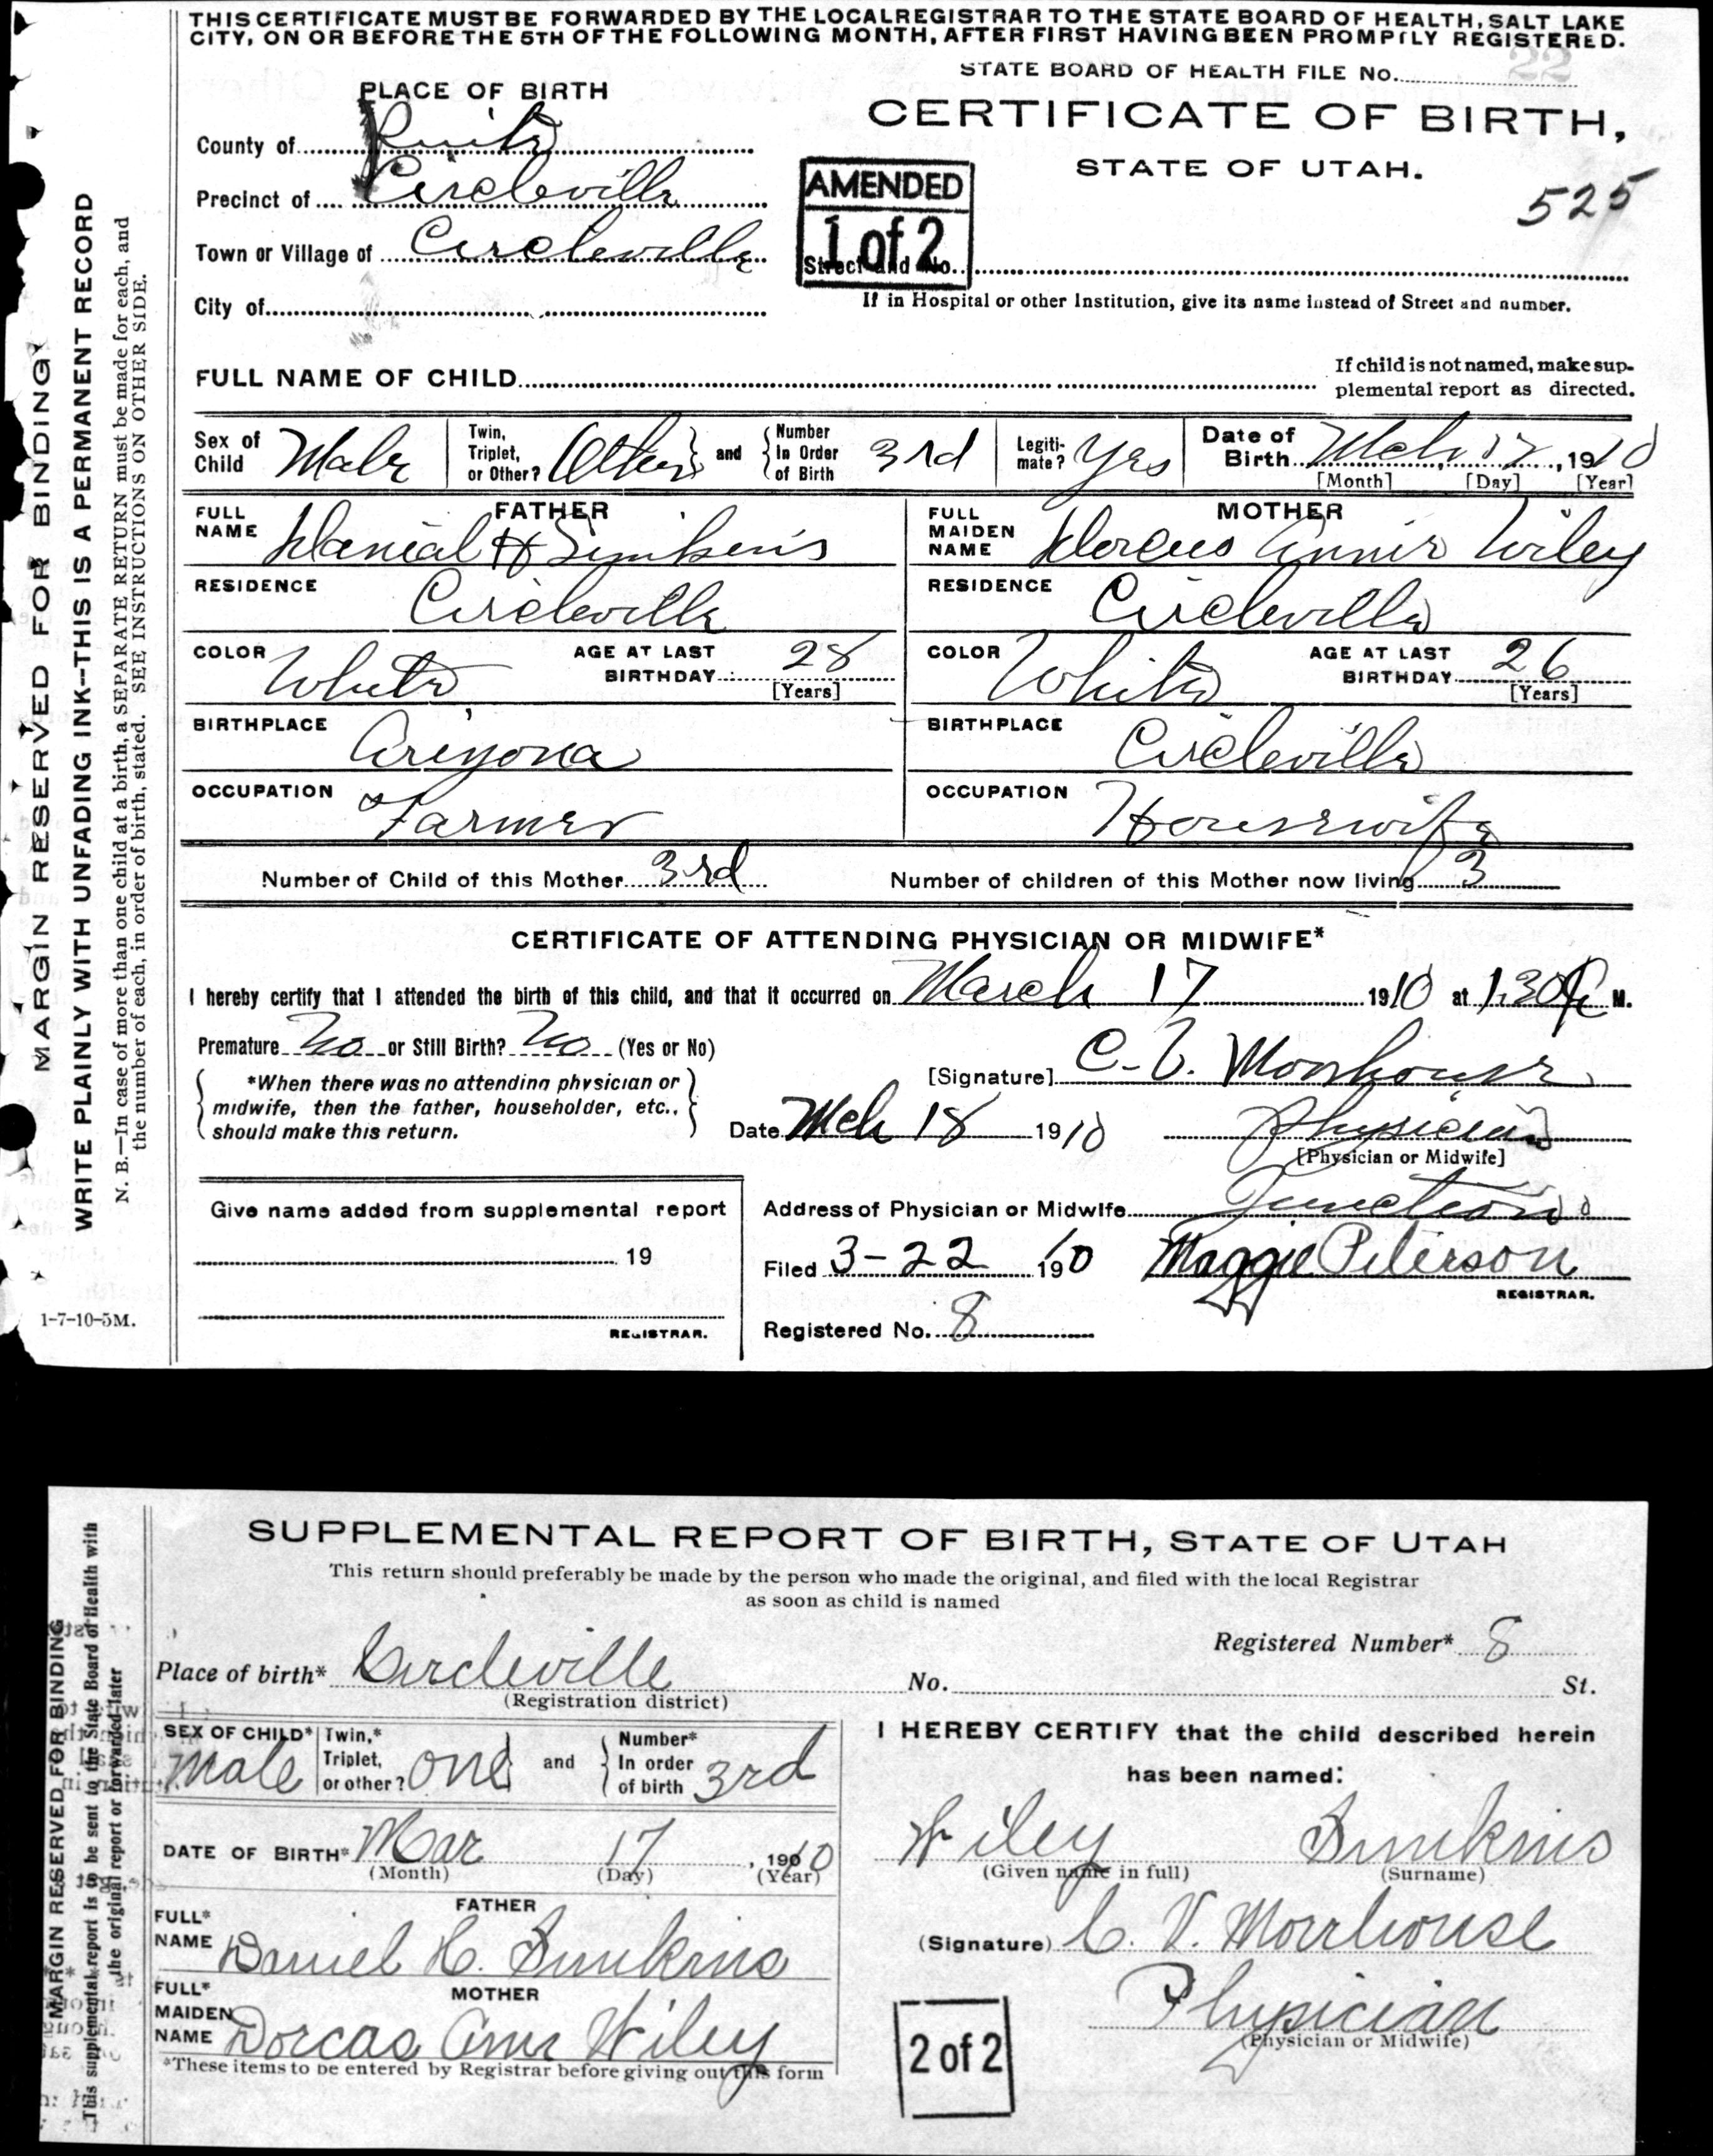 THIS CERTIFICATE MUST BE FORWARDED BY THE LOCAL REGISTRAR TO THE STATE BOARD OF HEALTH, SALT LAKE
CITY, ON OR BEFORE THE 5TH OF THE FOLLOWING MONTH, AFTER FIRST HAVING BEEN PROMPTLY REGISTERED.
STATE BOARD OF HEALTH FILE No. 22
PLACE OF BIRTH
CERTIFICATE OF BIRTH,
STATE OF UTAH.
525
County of Piute
Precinct of Circleville
Town or Village of Circleville
City of
AMENDED
1 of 2
Street and No.
If in Hospital or other Institution, give its name instead of Street and number.
FULL NAME OF CHILD
If child is not named, make sup-
plemental report as directed.
Sex of Child Male Twin, Triplet, or Other? Other and Number In Order of Birth 3rd Legiti-mate? Yes Date of Birth Mch 17, 1910
[Month] [Day] [Year]
FATHER
FULL NAME Danial H Simkins
RESIDENCE Circleville
COLOR White AGE AT LAST BIRTHDAY 28 [Years]
BIRTHPLACE Arizona
OCCUPATION Farmer
MOTHER
FULL MAIDEN NAME Dorcus Annie Wiley
RESIDENCE Circleville
COLOR White AGE AT LAST BIRTHDAY 26 [Years]
BIRTHPLACE Circleville
OCCUPATION Housewife
Number of Child of this Mother 3rd Number of children of this Mother now living 3
CERTIFICATE OF ATTENDING PHYSICIAN OR MIDWIFE*
I hereby certify that I attended the birth of this child, and that it occurred on March 17 1910 at 1:30 P M.
Premature No or Still Birth? No (Yes or No)
*When there was no attending physician or
midwife, then the father, householder, etc.,
should make this return.
[Signature] C. V. Moorhouse
Date Mch 18 1910 Physician
[Physician or Midwife]
Give name added from supplemental report
19
REGISTRAR.
Address of Physician or Midwife Junction
Filed 3-22 1910 Maggie Peterson
REGISTRAR.
Registered No. 8
MARGIN RESERVED FOR BINDING
WRITE PLAINLY WITH UNFADING INK--THIS IS A PERMANENT RECORD
N. B.—In case of more than one child at a birth, a SEPARATE RETURN must be made for each, and
the number of each, in order of birth, stated. SEE INSTRUCTIONS ON OTHER SIDE.
1-7-10-5M.
SUPPLEMENTAL REPORT OF BIRTH, STATE OF UTAH
This return should preferably be made by the person who made the original, and filed with the local Registrar
as soon as child is named
Registered Number* 8
Place of birth* Circleville No. St.
(Registration district)
SEX OF CHILD* Male Twin,* Triplet, or other? one and Number* In order of birth 3rd
DATE OF BIRTH* Mar 17, 1910
(Month) (Day) (Year)
FATHER
FULL* NAME Daniel H. Simkins
MOTHER
FULL* MAIDEN NAME Dorcas Ann Wiley
*These items to be entered by Registrar before giving out this form
I HEREBY CERTIFY that the child described herein
has been named:
Wiley Simkins
(Given name in full) (Surname)
(Signature) C. V. Moorhouse
Physician
(Physician or Midwife)
2 of 2
MARGIN RESERVED FOR BINDING
This supplemental report is to be sent to the State Board of Health with
the original report or forwarded later